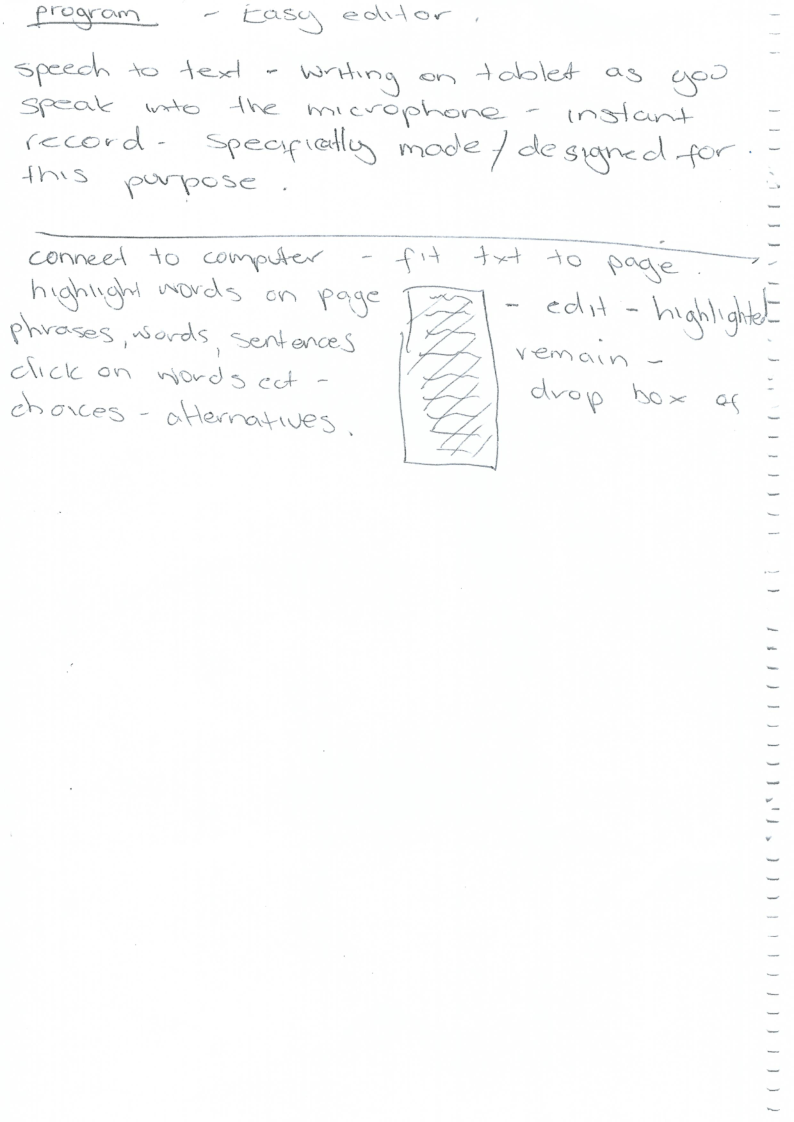 program - Easy editor.
speech to text - writing on tablet as you
speak into the microphone - instant
record - specifically made / designed for.
this purpose.
connect to computer - fit txt to page.
highlight words on page
phrases, words, sentences
click on words ect -
choices - alternatives.
- edit - highlighted
remain -
drop box of